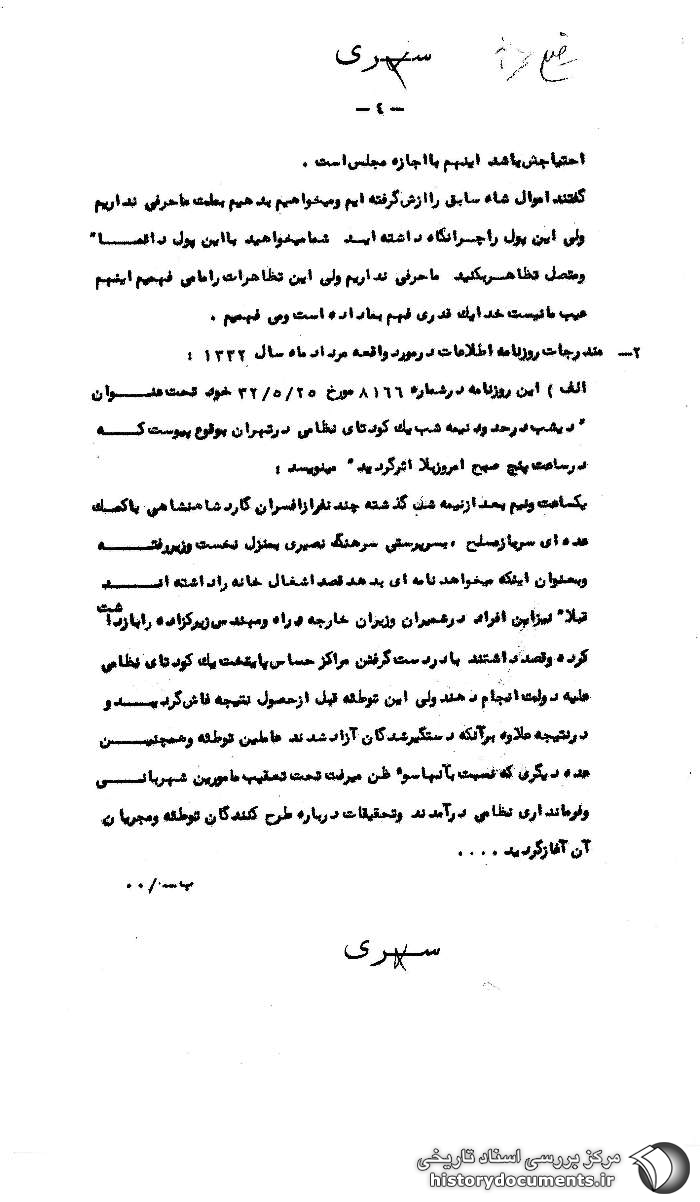 سری
- ٤ -
احتیاجش باشد اینهم با اجازه مجلس است .
گفتند اموال شاه سابق را ازش گرفته ایم و میخواهیم بدهیم بملت ما حرفی نداریم
ولی این پول را چرا نگاه داشته اید شما میخواهید با این پول دائمـا"
و متصل تظاهر بکنید ما حرفی نداریم ولی این تظاهرات را ما می فهمیم اینهم
عیب ما نیست خدا یك قدری فهم بما داده است و می فهمیم .
۲- مندرجات روزنامه اطلاعات در مورد واقعه مرداد ماه سال ۱۳۳۲ :
الف ) این روزنامه در شماره ۸۱۶۶ مورخ ۳۲/۵/۲۵ خود تحت عنـوان
" دیشب در حدود نیمه شب یك کودتای نظامی در تهران بوقوع پیوست کـه
در ساعت پنج صبح امروز بلا اثر گردید " مینویسد :
یکساعت و نیم بعد از نیمه شب گذشته چند نفر از افسران گارد شاهنشاهی با کمك
عده ای سرباز مسلح ، بسرپرستی سرهنگ نصیری بمنزل نخست وزیر رفتـه
و بعنوان اینکه میخواهد نامه ای بدهد قصد اشغال خانه را داشته انـد
قبلا" نیز این افراد در شمیران وزیران خارجه و راه و مهندس زیرکزاده را بازداشت
کرده و قصد داشتند با در دست گرفتن مراکز حساس پایتخت یك کودتای نظامی
علیه دولت انجام دهند ولی این توطئه قبل از حصول نتیجه فاش گردیـد و
در نتیجه علاوه بر آنکه دستگیرشدگان آزاد شدند عاملین توطئه و همچنیـن
عده دیگری که نسبت بآنها سو" ظن میرفت تحت تعقیب مامورین شهربانـی
و فرمانداری نظامی در آمدند و تحقیقات درباره طرح کنندگان توطئه و مجریان
آن آغاز گردید . . . .
ب - ۰۰/۰
سری
مرکز بررسی اسناد تاریخی
historydocuments.ir